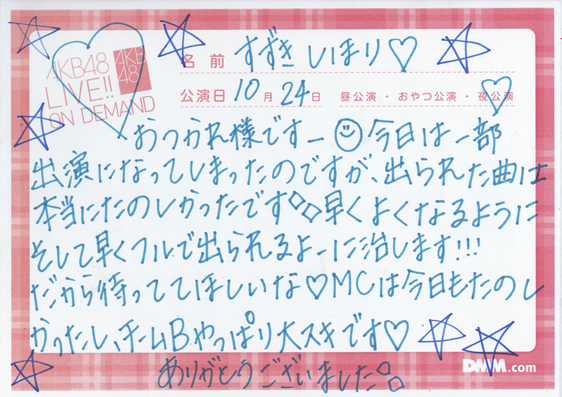 AKB48
LIVE!!
ON DEMAND
AKB
48
名前 すずきしほり♡
公演日 10月24日 昼公演・おやつ公演・夜公演
おつかれ様ですー☺今日は一部
出演になってしまったのですが、出られた曲は
本当にたのしかったです◇◇早くよくなるように
そして早くフルで出られるよーに治します!!!
だから待っててほしいな♡MCは今日もたのし
かったし、チームBやっぱり大スキです♡
ありがとうございました。
DMM.com